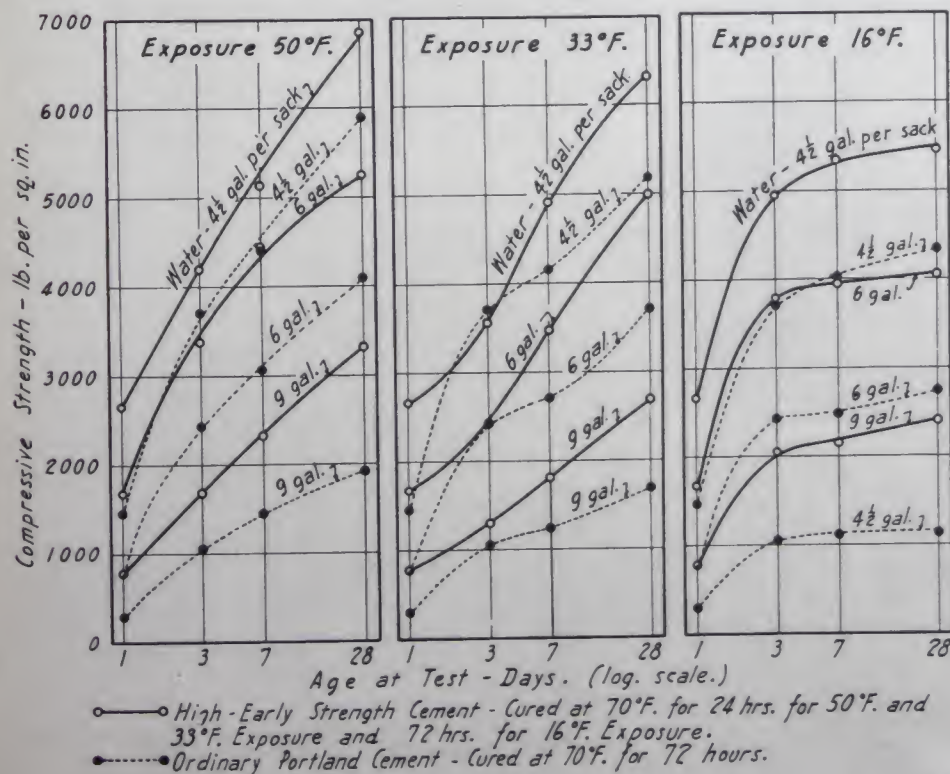 Compressive Strength - lb. per sq. in.
7000
6000
5000
4000
3000
2000
1000
0
Exposure 50°F.
Water - 4½ gal. per sack
4½ gal.
6 gal.
6 gal.
9 gal.
9 gal.
1 3 7 28
Exposure 33°F.
Water - 4½ gal. per sack
4½ gal.
6 gal.
6 gal.
9 gal.
9 gal.
1 3 7 28
Exposure 16°F.
Water - 4½ gal. per sack
4½ gal.
6 gal.
6 gal.
9 gal.
4½ gal.
1 3 7 28
Age at Test - Days. (log. scale.)
High-Early Strength Cement - Cured at 70°F. for 24 hrs. for 50°F. and
33°F. Exposure and 72 hrs. for 16°F. Exposure.
Ordinary Portland Cement - Cured at 70°F. for 72 hours.